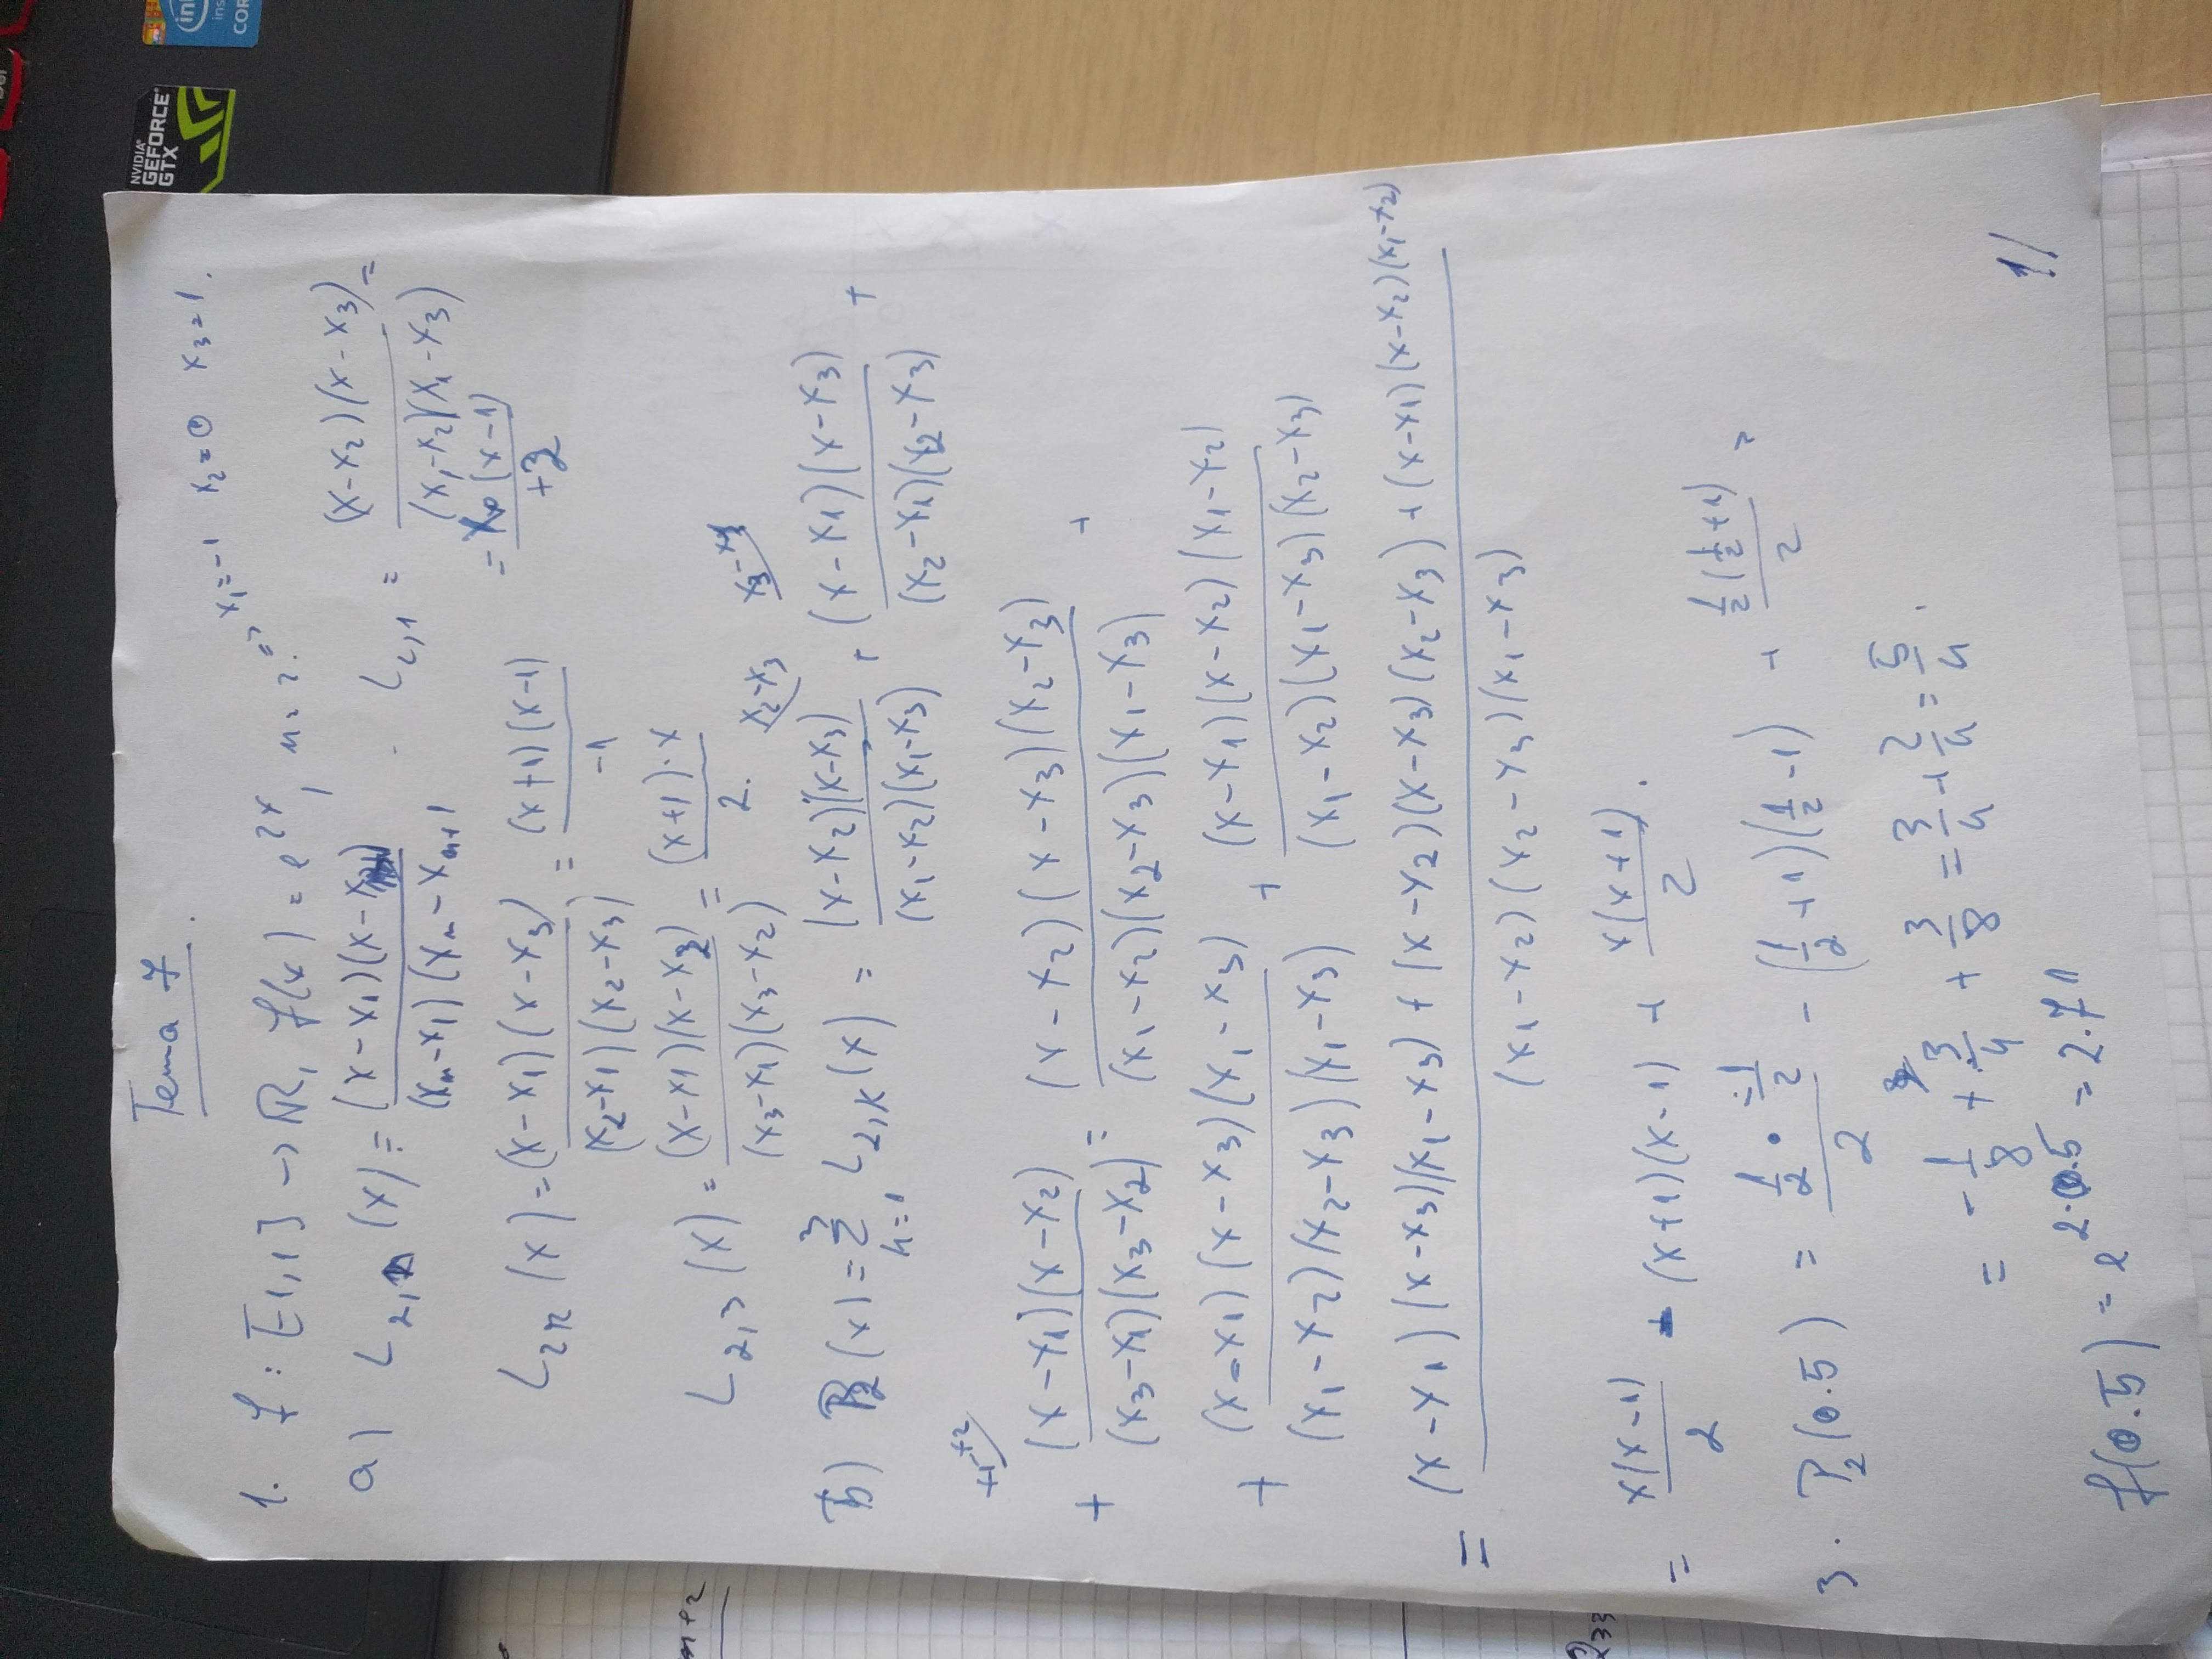 Tema 7.
1. f : [-1,1] → ℝ, f(x) = e^{2x}, n=2. ⇒ x₁=-1 x₂=0 x₃=1.
a) L_{2,k}(x) = (x-x₁)(x-x / (x_n-x₁)(x_n-x_{n+1} . L_{2,1} = (x-x₂)(x-x₃) / (x₁-x₂)(x₁-x₃) =
= x(x-1) / +2
L_{22}(x) = (x-x₁)(x-x₃) / (x₂-x₁)(x₂-x₃) = (x+1)(x-1) / -1
L_{2,3}(x) = (x-x₁)(x-x₂) / (x₃-x₁)(x₃-x₂) = (x+1)·x / 2.
x₂-x₃ x₃-x₁
b) P₂(x) = Σ_{k=1}^{3} L_{2,k}(x) = (x-x₂)(x-x₃) / (x₁-x₂)(x₁-x₃) + (x-x₁)(x-x₃) / (x₂-x₁)(x₂-x₃) +
x₁-x₂
+ (x-x₁)(x-x₂) / (x₃-x₁)(x₃-x₂) = (x-x₂)(x-x₃)(x₂-x₃) / (x₁-x₂)(x₂-x₃)(x₁-x₃) +
+ (x-x₁)(x-x₃)(x₁-x₃) / (x₁-x₂)(x₂-x₃)(x₁-x₃) + (x-x₁)(x-x₂)(x₁-x₂) / (x₁-x₂)(x₁-x₃)(x₂-x₃)
= (x-x₁)(x-x₃)(x₁-x₃) + (x-x₂)(x-x₃)(x₂-x₃) + (x-x₁)(x-x₂)(x₁-x₂) / (x₁-x₂)(x₂-x₃)(x₁-x₃)
= x(x-1) / 2 - (x+1)(x-1) + x(x+1) / 2 .
3. P₂(0.5) = 1/2 · -1/2 / 2 - (1/2+1)(1/2-1) + 1/2(1/2+1) / 2 =
= -1/8 + 3/4 + 3/8 = 3/4 + 2/4 = 5/4 .
f(0.5) = e^{2·0.5} = 2.71
1/
NVIDIA
GEFORCE
GTX